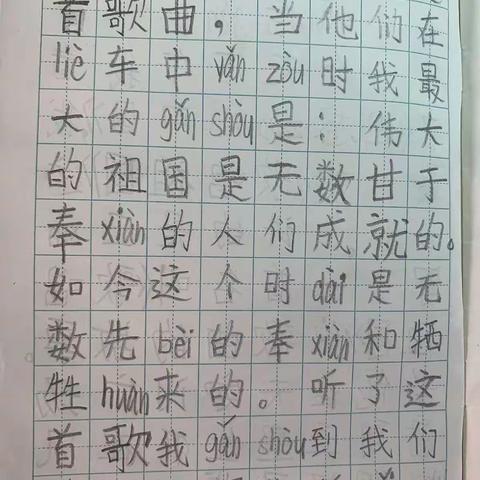 首歌曲，当他们在
liè车中yǎn zòu时我最
大的gǎn shòu是：伟大
的祖国是无数甘于
奉xiàn的人们成就的。
如今这个时dài是无
数先bèi的奉xiàn和牺
牲huàn来的。听了这
首歌我gǎn shòu到我们